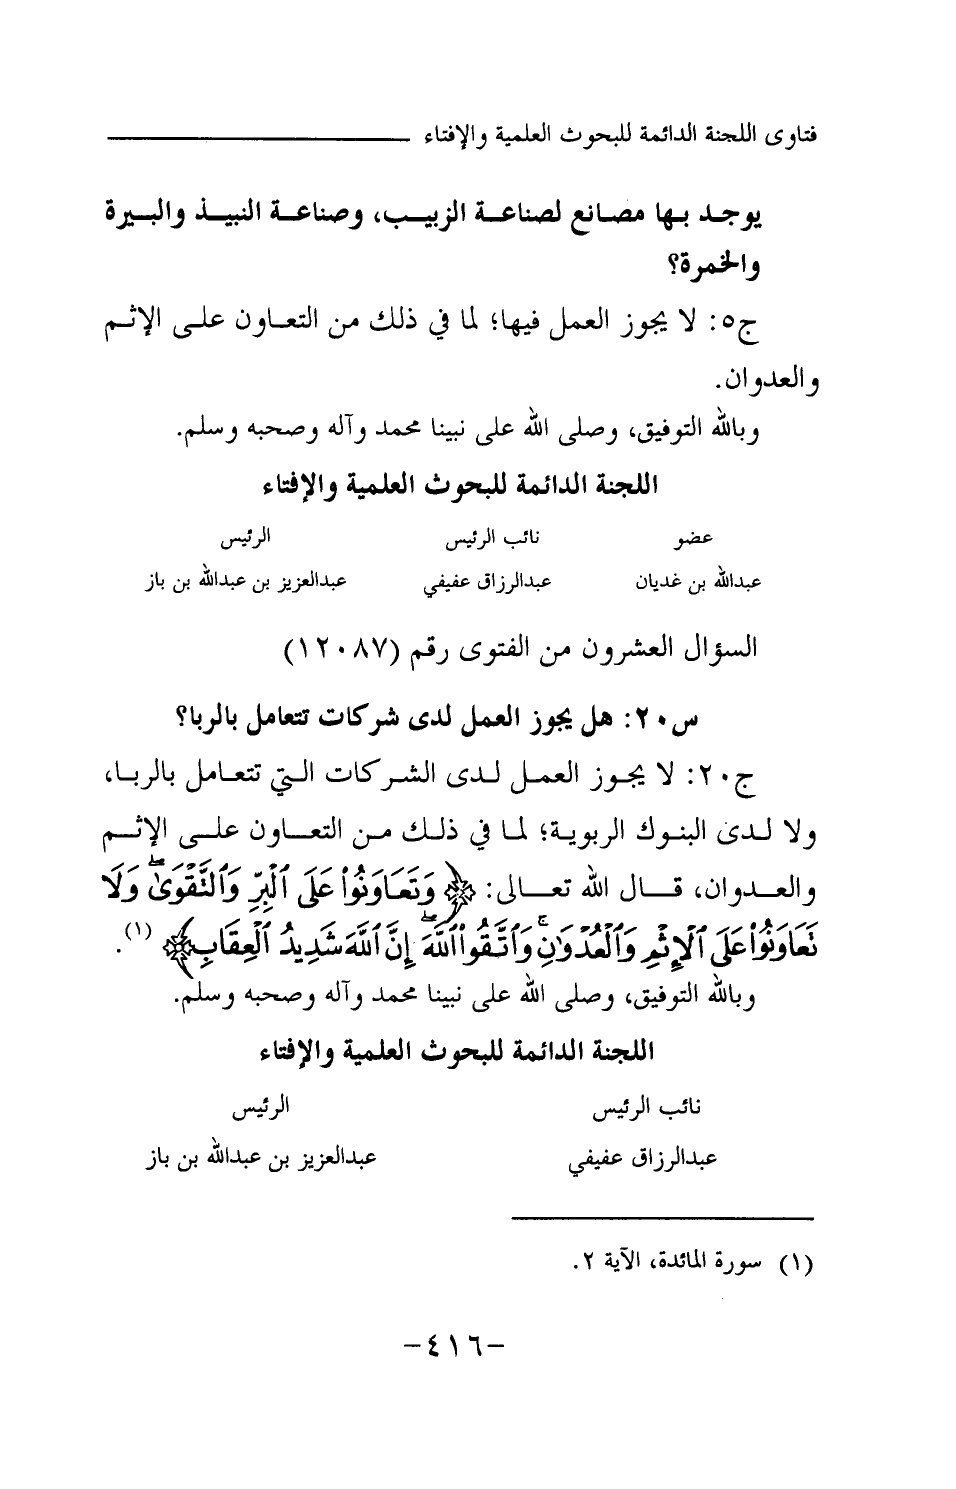 فتاوى اللجنة الدائمة للبحوث العلمية والإفتاء
يوجد بها مصانع لصناعة الزبيب، وصناعة النبيذ والبيرة
والخمرة؟
ج٥: لا يجوز العمل فيها؛ لما في ذلك من التعاون على الإثم
والعدوان.
وبالله التوفيق، وصلى الله على نبينا محمد وآله وصحبه وسلم.
اللجنة الدائمة للبحوث العلمية والإفتاء
عضو نائب الرئيس الرئيس
عبدالله بن غديان عبدالرزاق عفيفي عبدالعزيز بن عبدالله بن باز
السؤال العشرون من الفتوى رقم (١٢٠٨٧)
س٢٠: هل يجوز العمل لدى شركات تتعامل بالربا؟
ج٢٠: لا يجوز العمل لدى الشركات التي تتعامل بالربا،
ولا لدى البنوك الربوية؛ لما في ذلك من التعاون على الإثم
والعدوان، قال الله تعالى: ﴿وَتَعَاوَنُوا۟ عَلَى ٱلْبِرِّ وَٱلتَّقْوَىٰ ۖ وَلَا
تَعَاوَنُوا۟ عَلَى ٱلْإِثْمِ وَٱلْعُدْوَٰنِ ۚ وَٱتَّقُوا۟ ٱللَّهَ ۖ إِنَّ ٱللَّهَ شَدِيدُ ٱلْعِقَابِ﴾ (١).
وبالله التوفيق، وصلى الله على نبينا محمد وآله وصحبه وسلم.
اللجنة الدائمة للبحوث العلمية والإفتاء
نائب الرئيس الرئيس
عبدالرزاق عفيفي عبدالعزيز بن عبدالله بن باز
(١) سورة المائدة، الآية ٢.
-٤١٦-